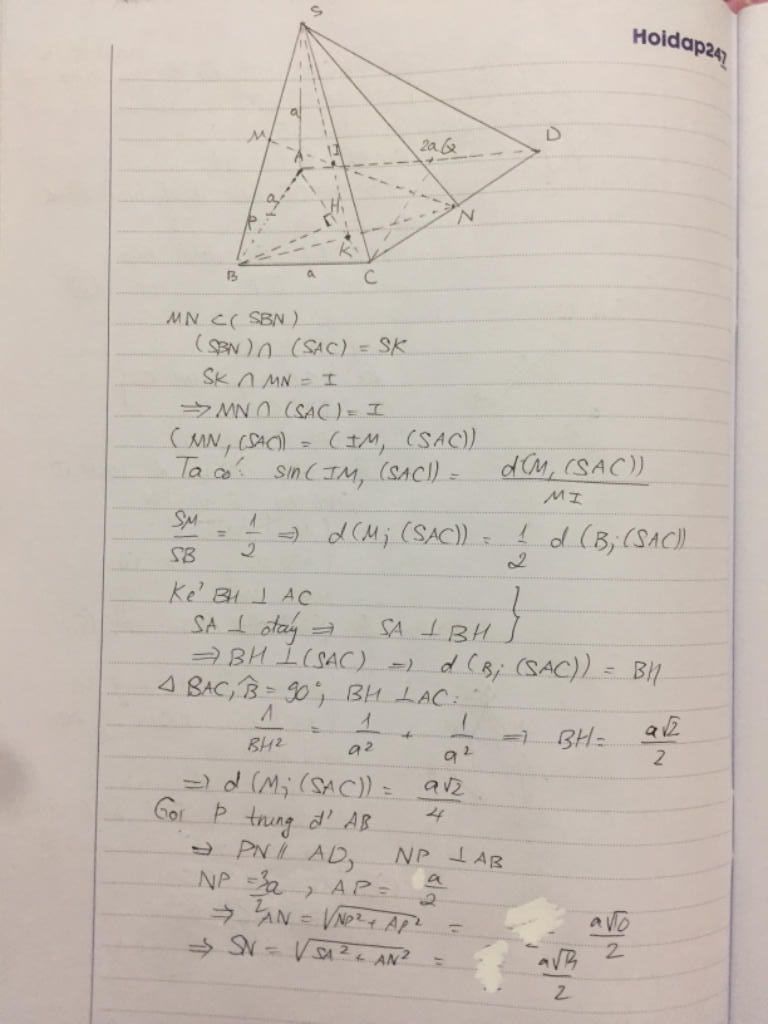 Hoidap247
S
a
M
A
I
2a
Q
D
a
P
H
N
K
B
a
C
MN ⊂ (SBN)
(SBN) ∩ (SAC) = SK
SK ∩ MN = I
⇒ MN ∩ (SAC) = I
(MN, (SAC)) = (IM, (SAC))
Ta có: sin(IM, (SAC)) = d(M, (SAC)) / MI
SM/SB = 1/2 ⇒ d(M; (SAC)) = 1/2 d(B; (SAC))
Kẻ BH ⊥ AC }
SA ⊥ đáy ⇒ SA ⊥ BH
⇒ BH ⊥ (SAC) ⇒ d(B; (SAC)) = BH
Δ BAC, B̂ = 90°, BH ⊥ AC:
1/BH² = 1/a² + 1/a² ⇒ BH = a√2/2
⇒ d(M; (SAC)) = a√2/4
Gọi P trung đ' AB
⇒ PN // AD, NP ⊥ AB
NP = 3a/2, AP = a/2
⇒ AN = √NP² + AP² = a√10/2
⇒ SN = √SA² + AN² =